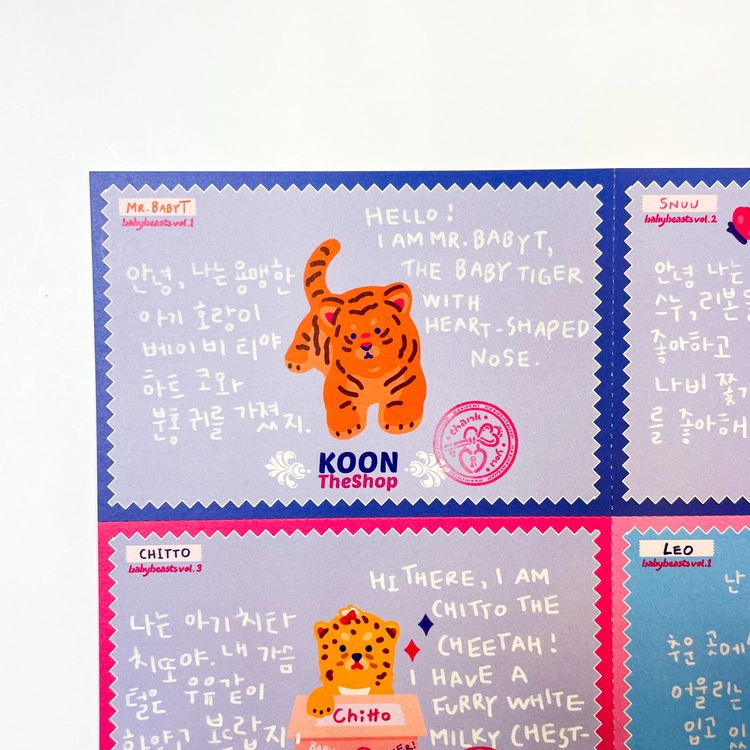 MR. BABYT
babybeasts vol.1
HELLO!
I AM MR. BABYT,
THE BABY TIGER
WITH
HEART-SHAPED
NOSE.
안녕, 나는 용맹한
아기 호랑이
베이비 티야
하트 코와
분홍 귀를 가졌지.
thank you
KOON
TheShop
SNUU
babybeasts vol.2
안녕 나는
스누, 리본을
좋아하고
나비 쫓기
를 좋아해
CHITTO
babybeasts vol.3
HI THERE, I AM
CHITTO THE
CHEETAH!
I HAVE A
FURRY WHITE
MILKY CHEST-
나는 아기 치타
치또야. 내 가슴
털은 우유같이
하얗고 보드랍지
Chitto
LEO
babybeasts vol.1
난
추운 곳에
어울리는
입고